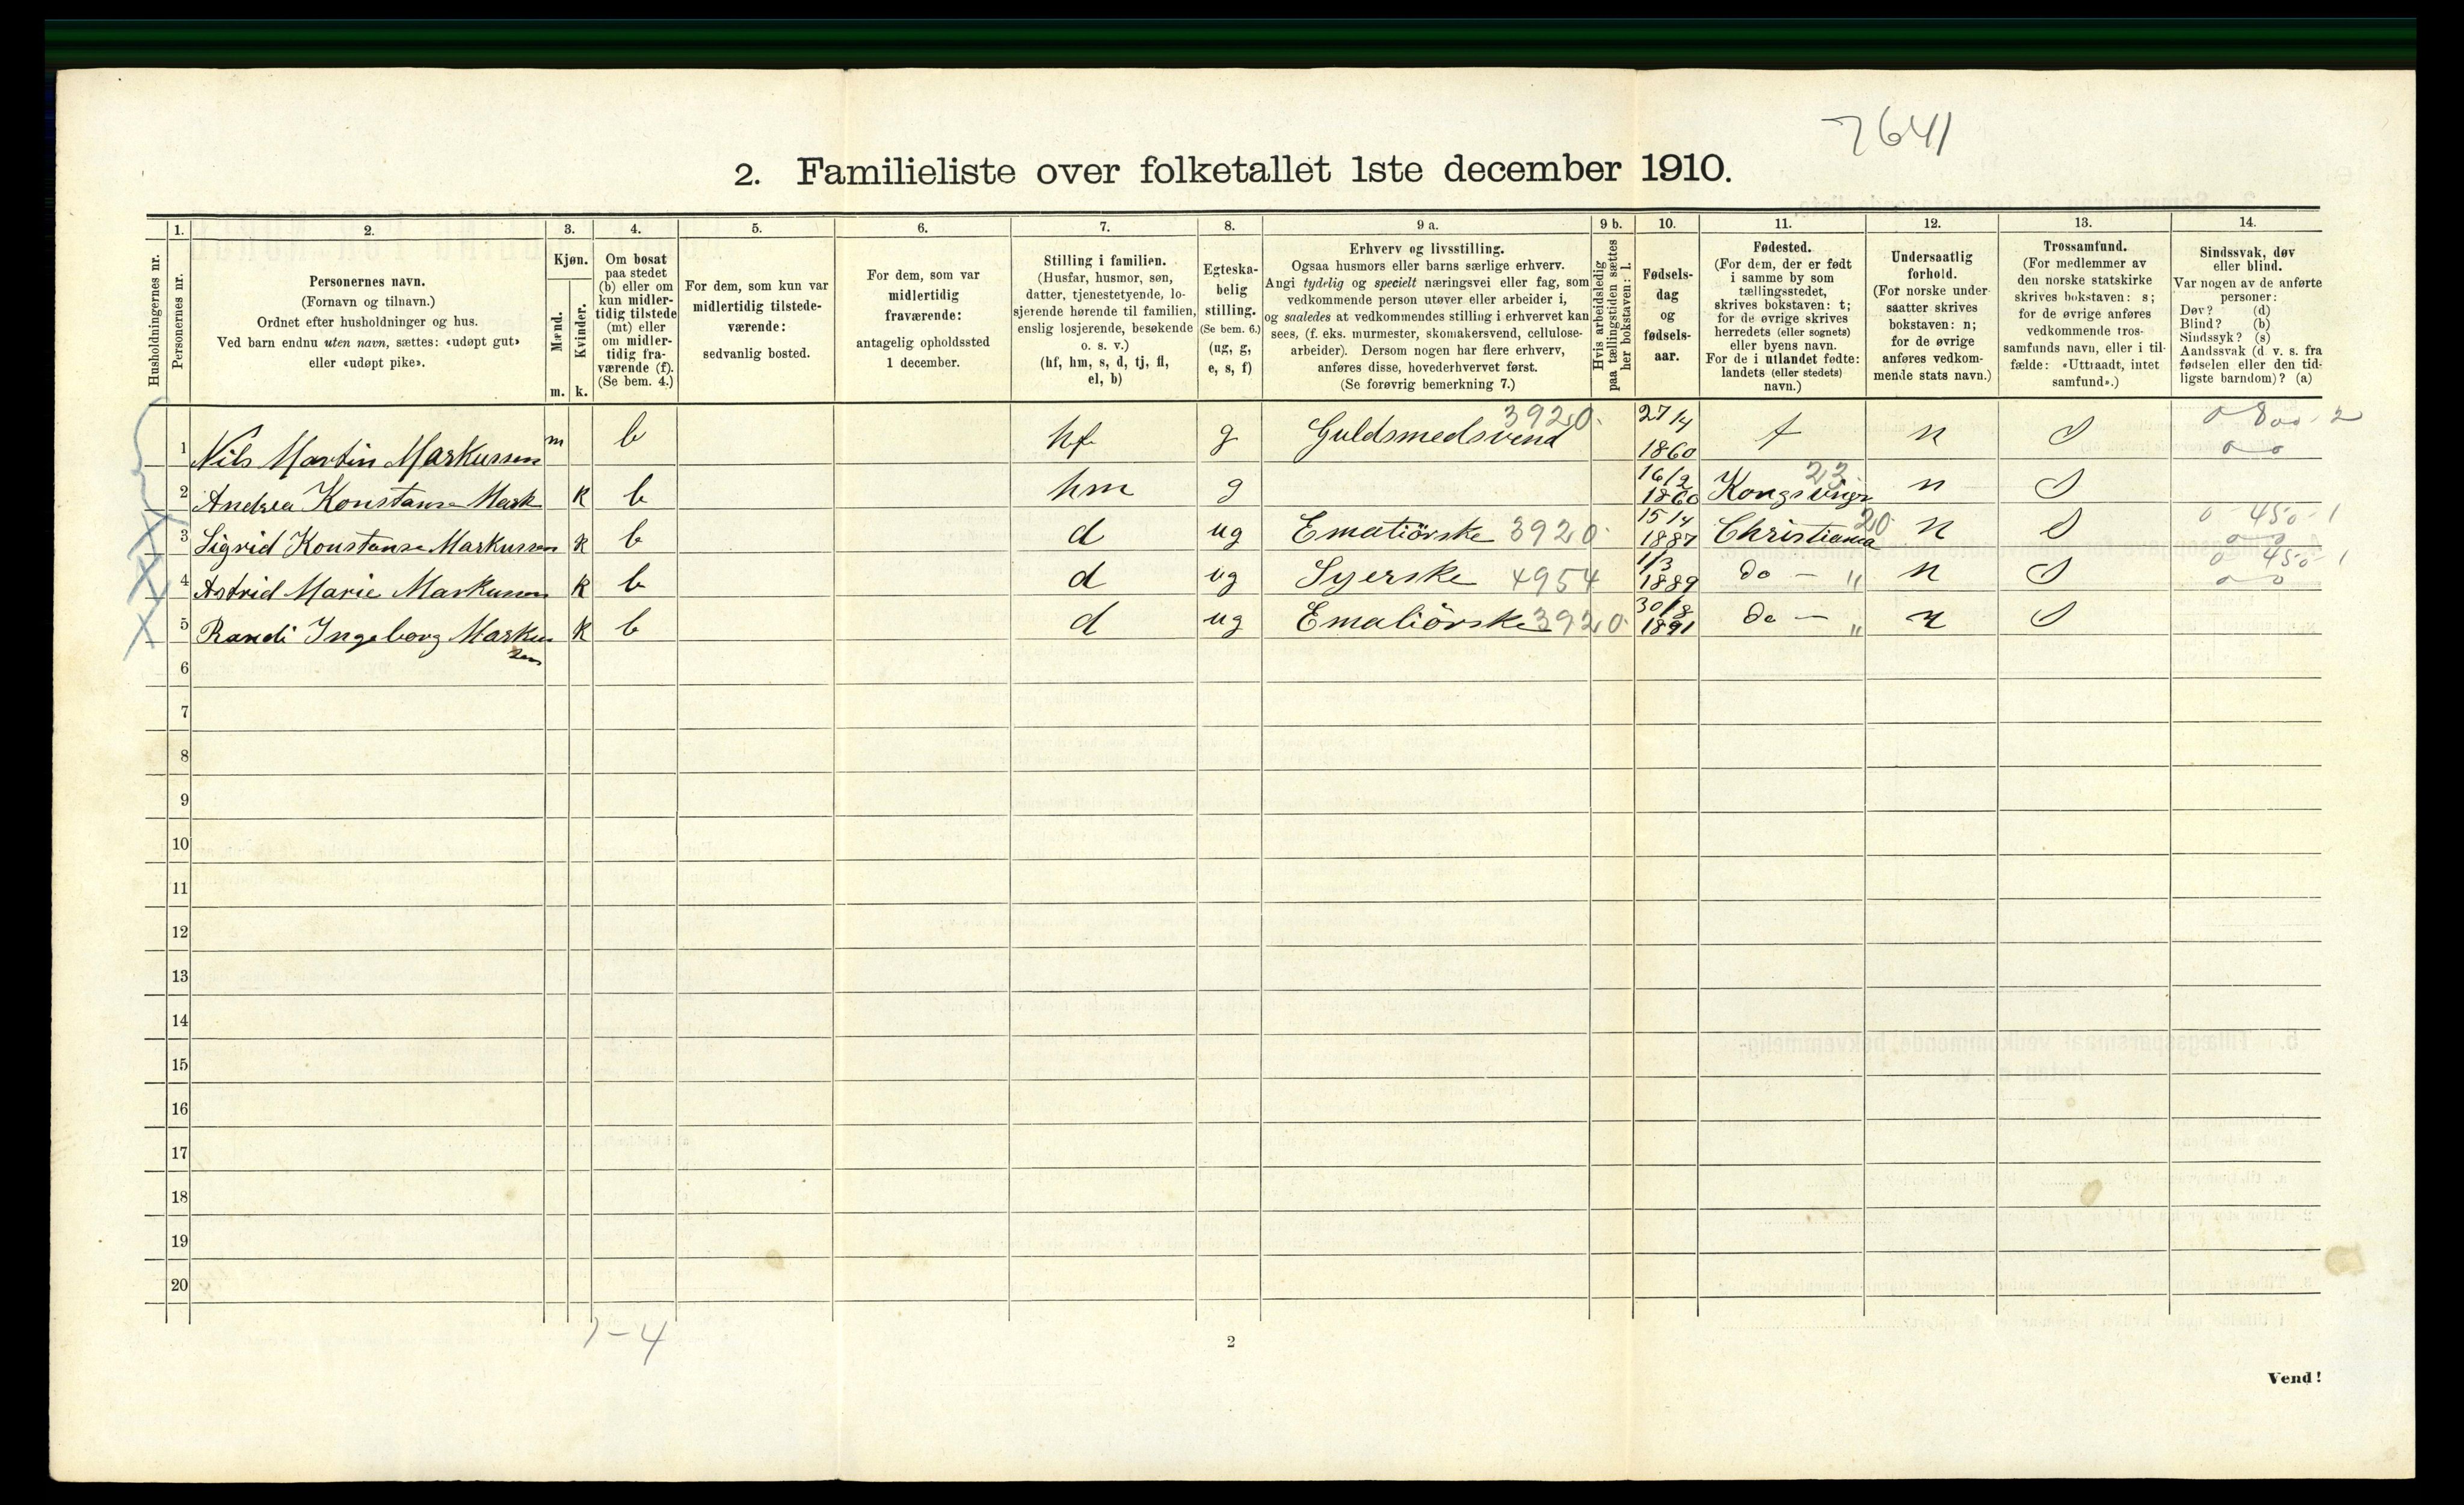 7641
2. Familieliste over folketallet 1ste december 1910.
1. 2. 3. 4. 5. 6. 7. 8. 9 a. 9 b. 10. 11. 12. 13. 14.
Husholdningernes nr.
Personernes nr.
Personernes navn.
(Fornavn og tilnavn.)
Ordnet efter husholdninger og hus.
Ved barn endnu uten navn, sættes: «udøpt gut»
eller «udøpt pike».
Kjøn.
Mænd.
Kvinder.
m. k.
Om bosat
paa stedet
(b) eller om
kun midler-
tidig tilstede
(mt) eller
om midler-
tidig fra-
værende (f).
(Se bem. 4.)
For dem, som kun var
midlertidig tilstede-
værende:
sedvanlig bosted.
For dem, som var
midlertidig
fraværende:
antagelig opholdssted
1 december.
Stilling i familien.
(Husfar, husmor, søn,
datter, tjenestetyende, lo-
sjerende hørende til familien,
enslig losjerende, besøkende
o. s. v.)
(hf, hm, s, d, tj, fl,
el, b)
Egteska-
belig
stilling.
(Se bem. 6.)
(ug, g,
e, s, f)
Erhverv og livsstilling.
Ogsaa husmors eller barns særlige erhverv.
Angi tydelig og specielt næringsvei eller fag, som
vedkommende person utøver eller arbeider i,
og saaledes at vedkommendes stilling i erhvervet kan
sees, (f. eks. murmester, skomakersvend, cellulose-
arbeider). Dersom nogen har flere erhverv,
anføres disse, hovederhvervet først.
(Se forøvrig bemerkning 7.)
Hvis arbeidsledig
paa tællingstiden sættes
her bokstaven: l.
Fødsels-
dag
og
fødsels-
aar.
Fødested.
(For dem, der er født
i samme by som
tællingsstedet,
skrives bokstaven: t;
for de øvrige skrives
herredets (eller sognets)
eller byens navn.
For de i utlandet fødte:
landets (eller stedets)
navn.)
Undersaatlig
forhold.
(For norske under-
saatter skrives
bokstaven: n;
for de øvrige
anføres vedkom-
mende stats navn.)
Trossamfund.
(For medlemmer av
den norske statskirke
skrives bokstaven: s;
for de øvrige anføres
vedkommende tros-
samfunds navn, eller i til-
fælde: «Uttraadt, intet
samfund».)
Sindssvak, døv
eller blind.
Var nogen av de anførte
personer:
Døv? (d)
Blind? (b)
Sindssyk? (s)
Aandssvak (d. v. s. fra
fødselen eller den tid-
ligste barndom)? (a)
1 Nils Martin Markussen m b hf g Guldsmedsvend 3920. 27/4 1860 t n S 0 800-2 0 0
2 Andrea Konstanse Mark k b hm g 16/2 1860 Kongsvinger 23 n S
3 Sigrid Konstanse Markussen k b d ug Emaliörske 3920. 15/4 1887 Christiania 20 n S 0 450-1 0 0
4 Astrid Marie Markussen k b d ug Syerske 4954 1/3 1889 do — " n S 0 450-1 0 0
5 Randi Ingeborg Markussen k b d ug Emaliörske 3920. 30/8 1891 do — " n S
6
7
8
9
10
11
12
13
14
15
16
17
18
19
20
1-4
2
Vend!